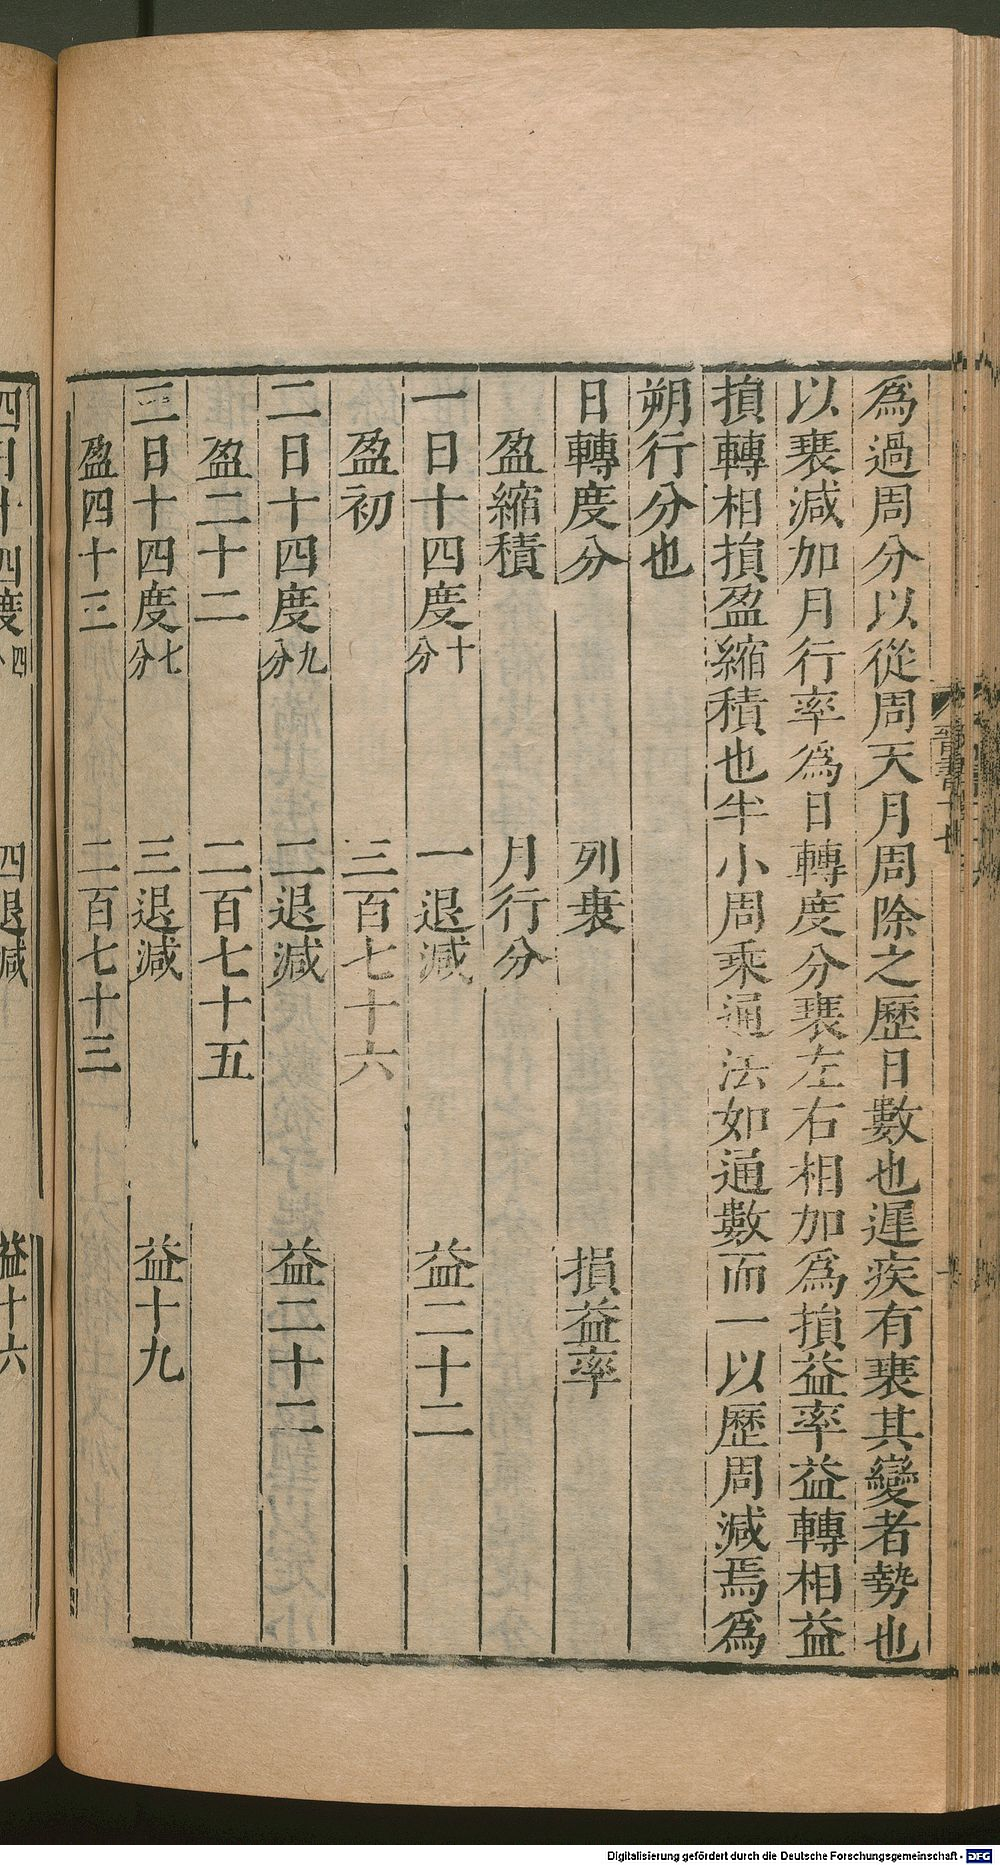 為過周分以從周天月周除之歷日數也遲疾有衰其變者勢也
以衰減加月行率為日轉度分衰左右相加為損益率益轉相益
損轉相損盈縮積也半小周乘通法如通數而一以歷周減焉為
朔行分也
日轉度分 列衰 損益率
盈縮積 月行分
一日十四度十分 一退減 益二十二
盈初 三百七十六
二日十四度九分 二退減 益二十二
盈二十二 二百七十五
三日十四度七分 三退減 益十九
盈四十三 二百七十三
四日十四度四 四退減 益十六
晉書十七
Digitalisierung gefördert durch die Deutsche Forschungsgemeinschaft - DFG